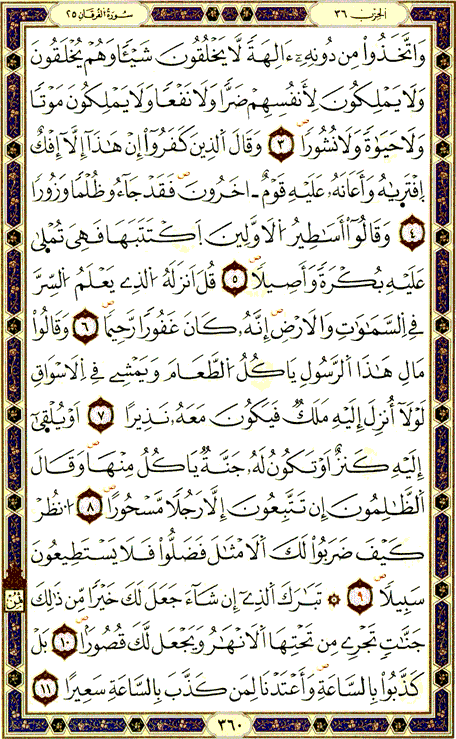 الحزب ٣٦
سورة الفرقان ٢٥
وَاتَّخَذُوا۟ مِن دُونِهِۦٓ ءَالِهَةً لَّا يَخْلُقُونَ شَيْـًٔا وَهُمْ يُخْلَقُونَ
وَلَا يَمْلِكُونَ لِأَنفُسِهِمْ ضَرًّا وَلَا نَفْعًا وَلَا يَمْلِكُونَ مَوْتًا
وَلَا حَيَوٰةً وَلَا نُشُورًا ٣ وَقَالَ اَلذِينَ كَفَرُوٓا۟ إِنْ هَٰذَآ إِلَّآ إِفْكٌ
اِفْتَرَيٰهُ وَأَعَانَهُۥ عَلَيْهِ قَوْمٌ ـ اخَرُونَ فَقَد جَّآءُو ظُلْمًا وَزُورًا
٤ وَقَالُوٓا۟ أَسَٰطِيرُ اُلَاوَّلِينَ اَكْتَتَبَهَا فَهِيَ تُمْلَيٰ
عَلَيْهِ بُكْرَةً وَأَصِيلًا ٥ قُلَ اَنزَلَهُ اُلذِے يَعْلَمُ اُلسِّرَّ
فِے اِلسَّمَٰوَٰتِ وَالَارْضِ إِنَّهُۥ كَانَ غَفُورًا رَّحِيمًا ٦ وَقَالُوا۟
مَالِ هَٰذَا اَلرَّسُولِ يَاكُلُ اُلطَّعَامَ وَيَمْشِے فِے اِلَاسْوَاقِ
لَوْلَآ أُنزِلَ إِلَيْهِ مَلَكٌ فَيَكُونَ مَعَهُۥ نَذِيرًا ٧ اَوْ يُلْقَيٰٓ
إِلَيْهِ كَنزٌ اَوْ تَكُونُ لَهُۥ جَنَّةٌ يَاكُلُ مِنْهَا وَقَالَ
اَلظَّٰلِمُونَ إِن تَتَّبِعُونَ إِلَّا رَجُلًا مَّسْحُورًا ٨ اُنظُرْ
كَيْفَ ضَرَبُوا۟ لَكَ اَلَامْثَٰلَ فَضَلُّوا۟ فَلَا يَسْتَطِيعُونَ
سَبِيلًا ٩ ۞ تَبَٰرَكَ اَلذِےٓ إِن شَآءَ جَعَلَ لَكَ خَيْرًا مِّن ذَٰلِكَ
جَنَّٰتٍ تَجْرِے مِن تَحْتِهَا اَلَانْهَٰرُ وَيَجْعَل لَّكَ قُصُورًا ١٠ بَلْ
كَذَّبُوا۟ بِالسَّاعَةِ وَأَعْتَدْنَا لِمَن كَذَّبَ بِالسَّاعَةِ سَعِيرًا ١١
ثمن
٣٦٠